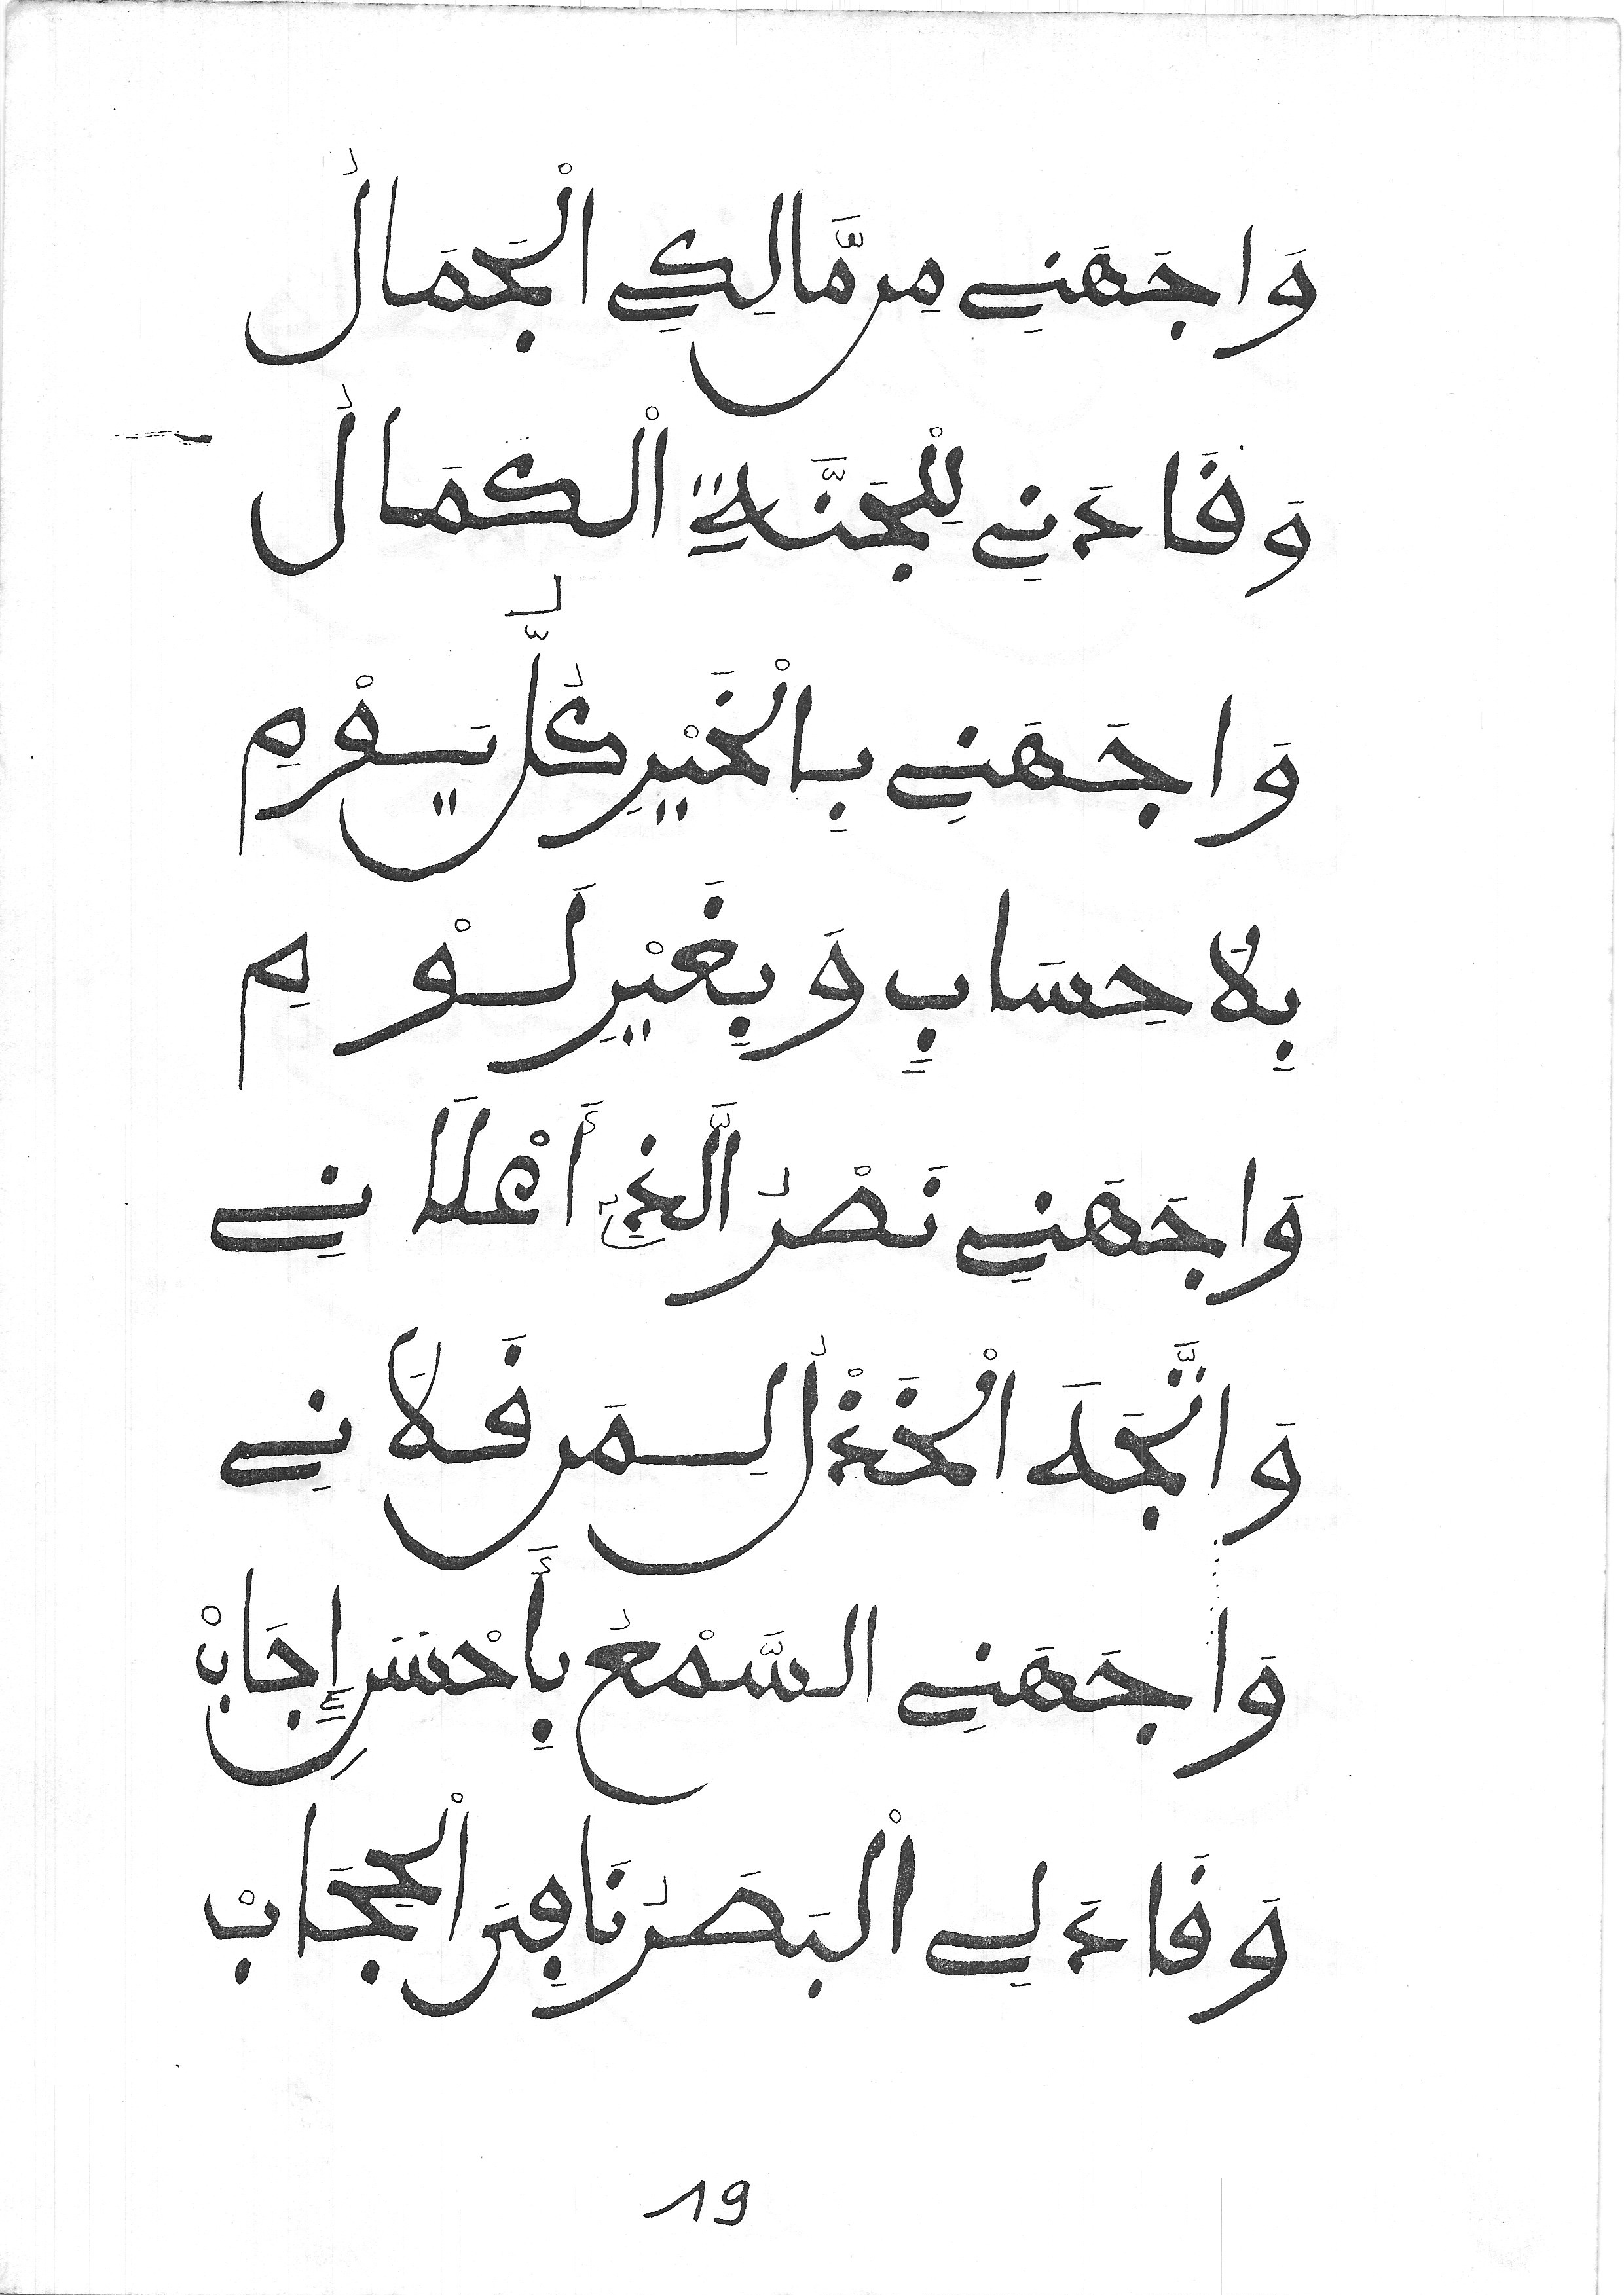 وَاجَهَنِي مِن مَّالِكِي الْجَمَالُ
وَقَادَنِي لِلْجَنَّةِ الْكَمَالُ
وَاجَهَنِي بِالْخَيْرِ كُلَّ يَوْمِ
بِلَا حِسَابٍ وَبِغَيْرِ لَوْمِ
وَاجَهَنِي نَصْرُ الَّذِي أَعْلَانِي
وَاتَّجَهَ الْخَذْلُ لِمَن قَلَانِي
وَاجَهَنِي السَّمْعُ بِأَحْسَنِ إِجَابْ
وَقَادَ لِي الْبَصَرُ نَافِيَ الْحِجَابْ
19